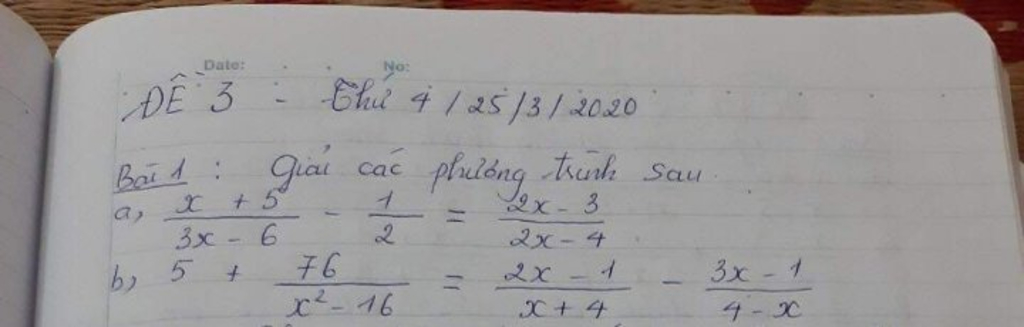 Date: No:
ĐỀ 3 - Thứ 4 / 25 / 3 / 2020
Bài 1 : Giải các phương trình sau.
a, (x + 5)/(3x - 6) - 1/2 = (2x - 3)/(2x - 4)
b, 5 + 76/(x² - 16) = (2x - 1)/(x + 4) - (3x - 1)/(4 - x)